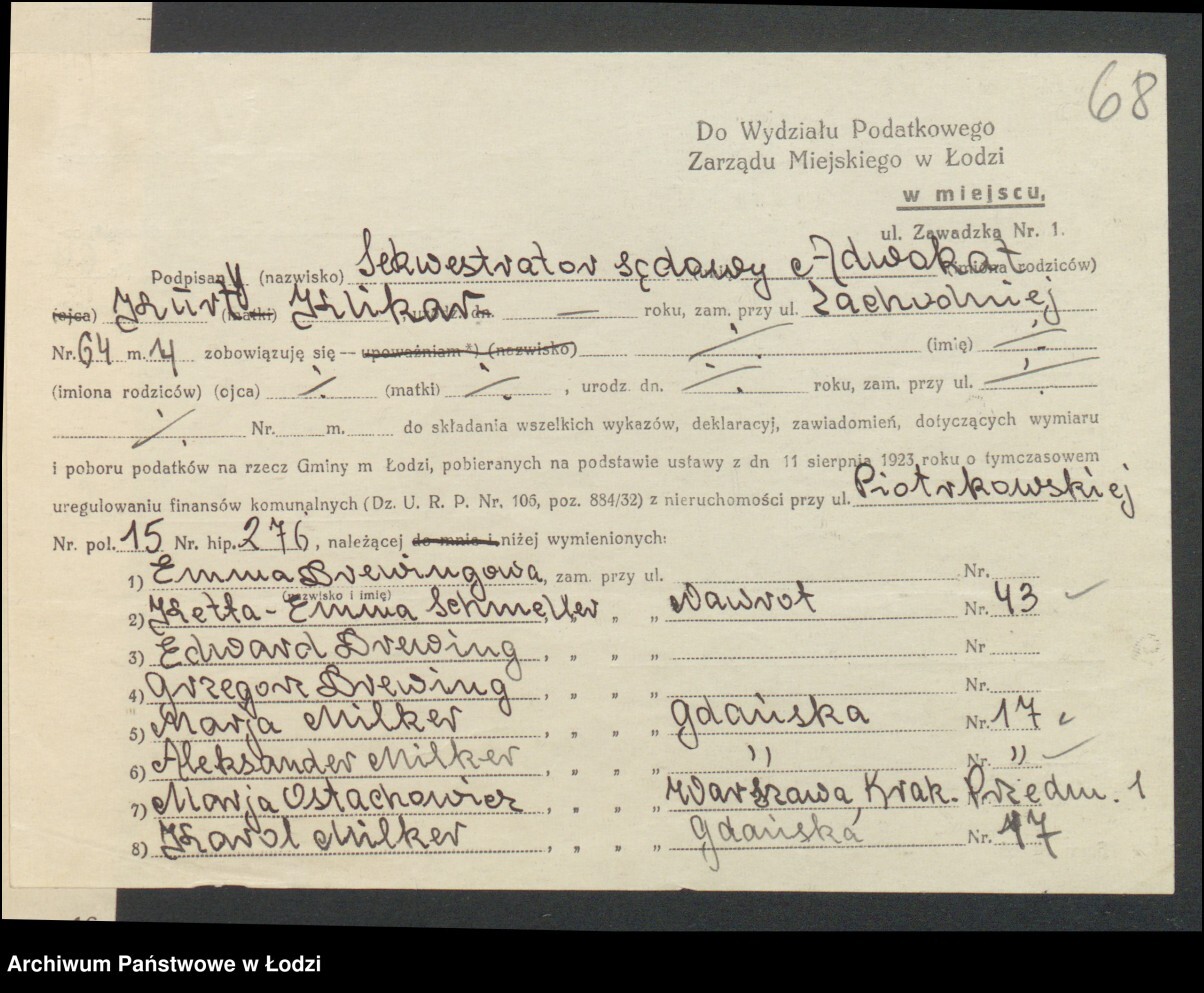 68
Do Wydziału Podatkowego
Zarządu Miejskiego w Łodzi
w miejscu,
ul. Zawadzka Nr. 1.
Podpisany (nazwisko) Sekwestrator sądowy Adwokat (imiona rodziców)
(ojca) Kurt (matki) Klikar dn. — roku, zam. przy ul. Zachodniej
Nr. 64 m. 4 zobowiązuję się — upoważniam*) (nazwisko) (imię)
(imiona rodziców) (ojca) (matki) , urodz. dn. roku, zam. przy ul.
Nr. m. do składania wszelkich wykazów, deklaracyj, zawiadomień, dotyczących wymiaru
i poboru podatków na rzecz Gminy m Łodzi, pobieranych na podstawie ustawy z dn 11 sierpnia 1923 roku o tymczasowem
uregulowaniu finansów komunalnych (Dz. U. R. P. Nr. 106, poz. 884/32) z nieruchomości przy ul. Piotrkowskiej
Nr. pol. 15 Nr. hip. 276, należącej do mnie i niżej wymienionych:
1) Emma Brewingowa, zam. przy ul. Nr.
(nazwisko i imię)
2) Ketta-Emma Schmeller „ „ „ Nawrot Nr. 43
3) Edward Brewing, „ „ „ Nr
4) Grzegorz Brewing, „ „ „ Nr.
5) Marja Milker, „ „ „ Gdańska Nr. 17
6) Aleksander Milker, „ „ „ " Nr. "
7) Marja Ostachowicz, „ „ „ Warszawa, Krak. Przedm. 1
8) Karol Milker, „ „ „ Gdańska Nr. 17
Archiwum Państwowe w Łodzi